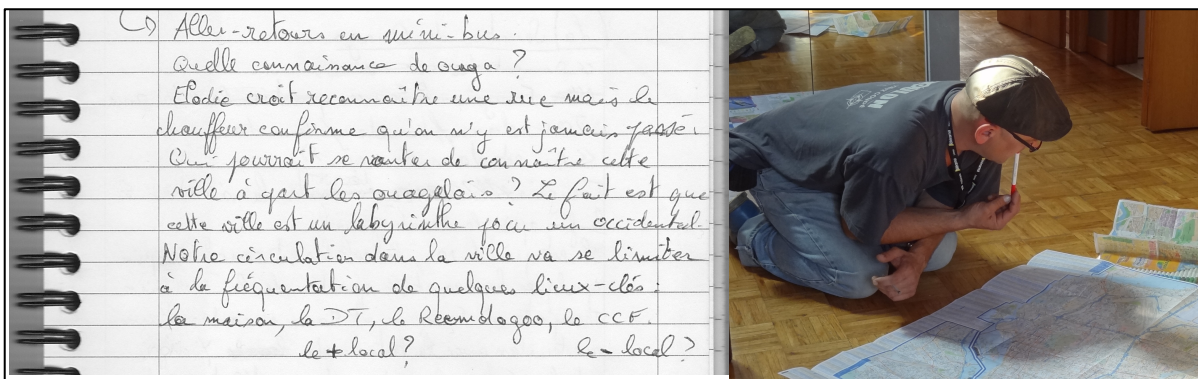 ↳ Aller-retours en mini-bus.
Quelle connaissance de ouaga ?
Elodie croit reconnaître une rue mais le
chauffeur confirme qu'on n'y est jamais passé.
Qui pourrait se vanter de connaître cette
ville à part les ouagalais ? Le fait est que
cette ville est un labyrinthe pour un occidental.
Notre circulation dans la ville va se limiter
à la fréquentation de quelques lieux-clés :
la maison, la DT, le Reemdogoo, le CCF.
le + local ? le - local ?